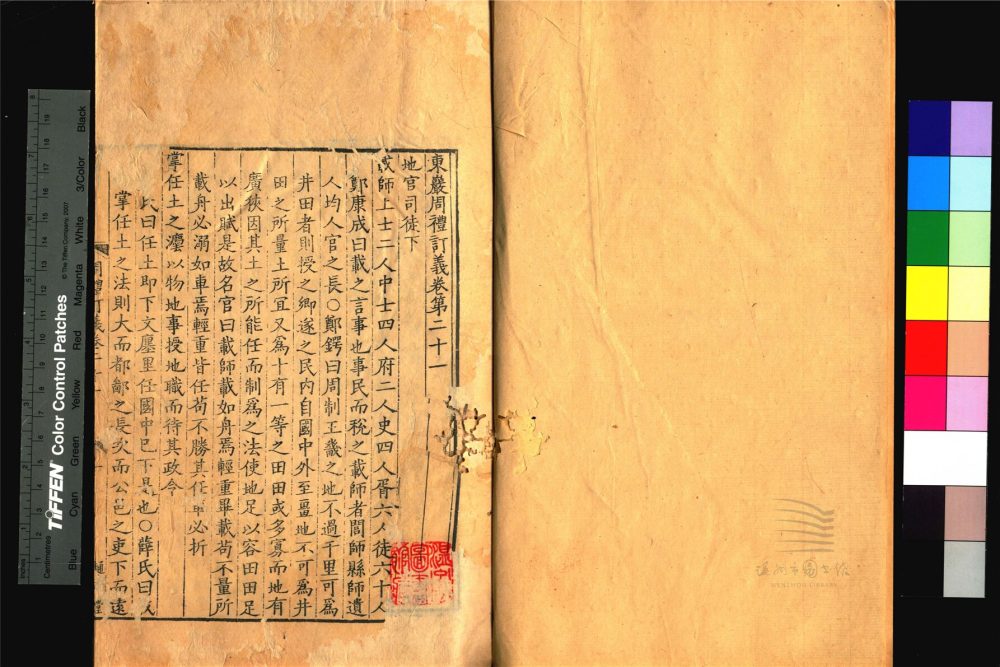 東巖周禮訂義卷第二十一
地官司徒下
載師上士二人中士四人府二人史四人胥六人徒六十人
鄭康成曰載之言事也事民而稅之載師者閭師縣師遺
人均人官之長○鄭鍔曰周制王畿之地不過千里可爲
井田者則授之鄉遂之民內自國中外至畺地不可爲井
田之所量土所宜又爲十有一等之田田或多寡而地有
廣狹因其土之所能任而制爲之法使地足以容田田足
以出賦是故名官曰載師載如舟焉輕重畢載苟不量所
載舟必溺如車焉輕重皆任苟不勝其任車必折
掌任土之灋以物地事授地職而待其政令
氏曰任土即下文廛里任國中已下是也○薛氏曰以
掌任土之法則大而都鄙之長次而公邑之吏下而遠
周禮訂義卷二十一
溫州市圖書館
WENZHOU LIBRARY
TIFFEN Color Control Patches
© The Tiffen Company, 2007
Inches
Centimetres
Blue
Cyan
Green
Yellow
Red
Magenta
White
3/Color
Black